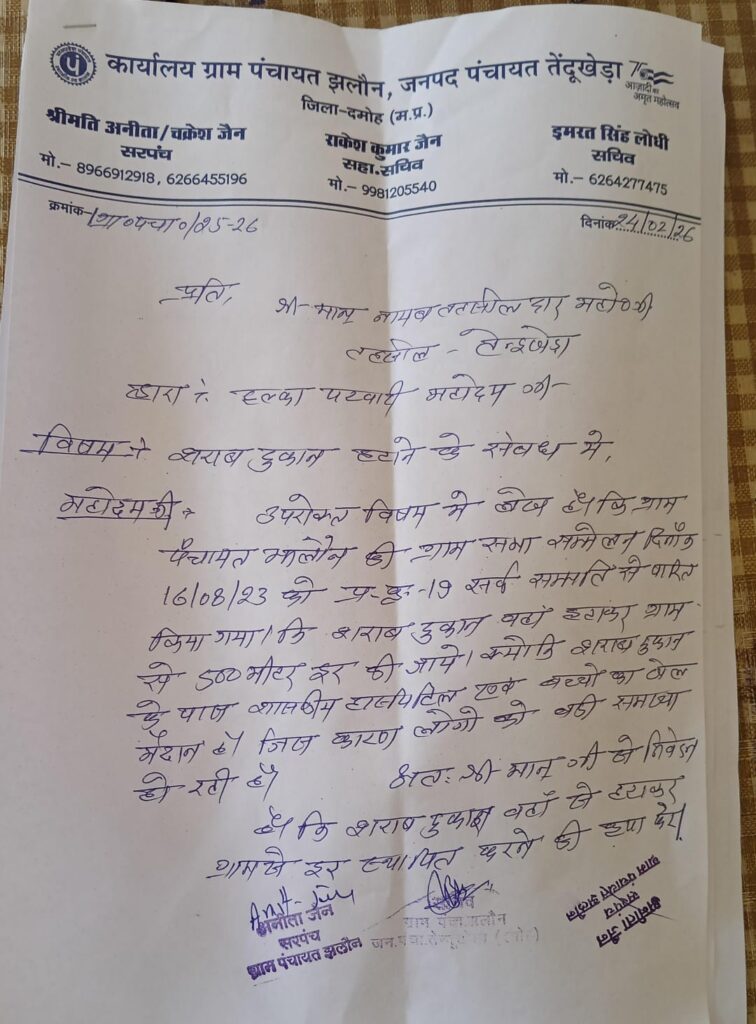 कार्यालय ग्राम पंचायत झलौन, जनपद पंचायत तेंदूखेड़ा
आज़ादी का
अमृत महोत्सव
जिला-दमोह (म.प्र.)
श्रीमति अनीता/चक्रेश जैन
सरपंच
मो.– 8966912918, 6266455196
राकेश कुमार जैन
सहा.सचिव
मो.– 9981205540
इमरत सिंह लोधी
सचिव
मो.– 6264277475
क्रमांक-/ग्रा०पंचा०/25-26
दिनांक 24/02/26
प्रति,
श्री मान् नायब तहसीलदार महोदय जी
तहसील - तेन्दूखेड़ा
द्वारा :- हल्का पटवारी महोदय जी-
विषय :- शराब दुकान हटाने के संबध मे,
महोदय जी :- उपरोक्त विषय मे लेख है कि ग्राम
पंचायत झलौन की ग्राम सभा सम्मेलन दिनाँक
16/08/23 को प्र-क्र-19 सर्व सम्मति से पारित
किया गया। कि शराब दुकान वहाँ हटाकर ग्राम
से 500 मीटर दूर की जाये। क्योकि शराब दुकान
के पास शासकीय हास्पिटिल एवं बच्चो का खेल
मैदान है। जिस कारण लोगो को बडी समस्या
हो रही है। अत: श्री मान् जी से निवेदन
है कि शराब दुकान वहाँ से हटाकर
ग्राम से दूर स्थापित करने की कृपा करे।
अनीता जैन
सरपंच
ग्राम पंचायत झलौन
सचिव
ग्राम पंचा.झलौन
जन.पंचा.तेन्दूखेड़ा
अनीता जैन
सरपंच
ग्राम पंचायत झलौन